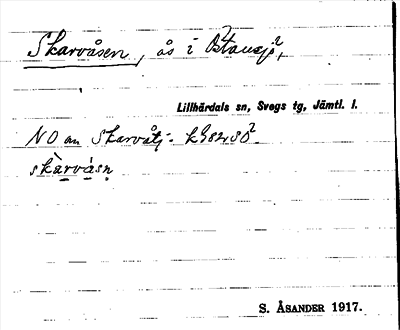 Skarvåsen, ås i Östansjö,
Lillhärdals sn, Svegs tg, Jämtl. l.
NO om Skarvåtj.
skàrvåsn
S. ÅSANDER 1917.